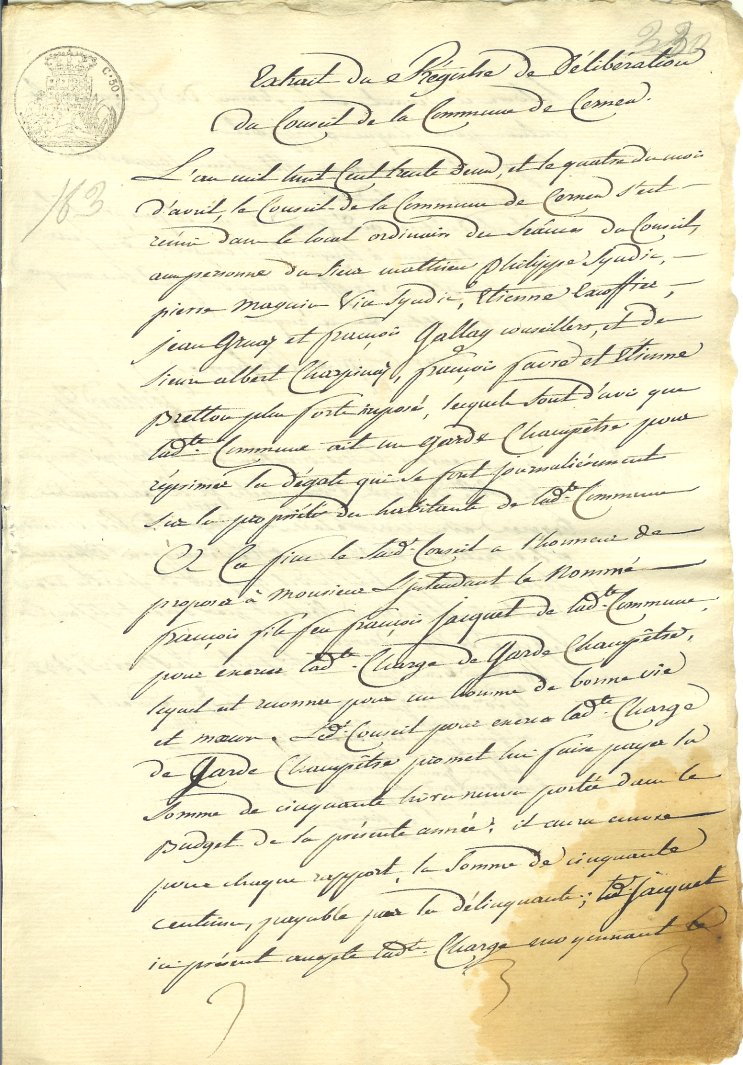 230
C. 50.
163
Extrait du Régistre de Délibération
du Conseil de la Commune de Cernex.
L'an mil huit Cent trente deux, et le quatre du mois
d'avril, le Conseil de la Commune de Cernex s'est
réuni dans le local ordinaire des séances du Conseil,
aux personnes du Sieur mathieu Philippe Syndic,
pierre magnin Vice Syndic, Etienne Excoffier,
jean Gruaz et françois Gallay conseillers, et de
Sieurs albert Charpinaz, françois favre et Etienne
Bretton plus forts imposé, lesquels sont d'avis que
lad.te Commune ait un Garde Champêtre pour
réprimer les dégats qui se font journalièrement
sur les propriétés des habitants de lad.te Commune
& Ca fins le Sud.t Conseil a l'honneur de
proposer à Monsieur L'jntendant le Nommé
françois fils feu françois jacquet de lad.te Commune,
pour exercer lad.te Charge de Garde Champêtre,
lequel est reconnu pour un homme de bonne vie
et mœurs. Led.t Conseil pour exercer lad.te Charge
de Garde Champêtre promet lui faire payer la
Somme de cinquante livres neuves portée dans le
Budget de la présente année; il aura encore
pour chaque rapport, la Somme de cinquante
centimes, payable par les délinquants; led.t jacquet
ici présent accepte lad.te Charge moyennant le